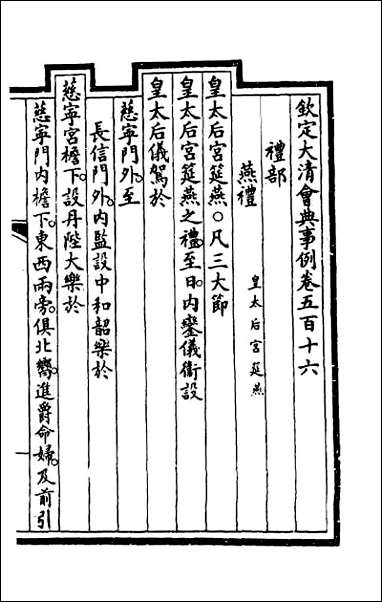 欽定大清會典事例卷五百十六
禮部
燕禮 皇太后宮筵燕
皇太后宮筵燕○凡三大節
皇太后宮筵燕之禮至日內鑾儀衞設
皇太后儀駕於
慈寧門外至
長信門外內監設中和韶樂於
慈寧宮檐下設丹陛大樂於
慈寧門內檐下東西兩旁俱北嚮進爵命婦及前引